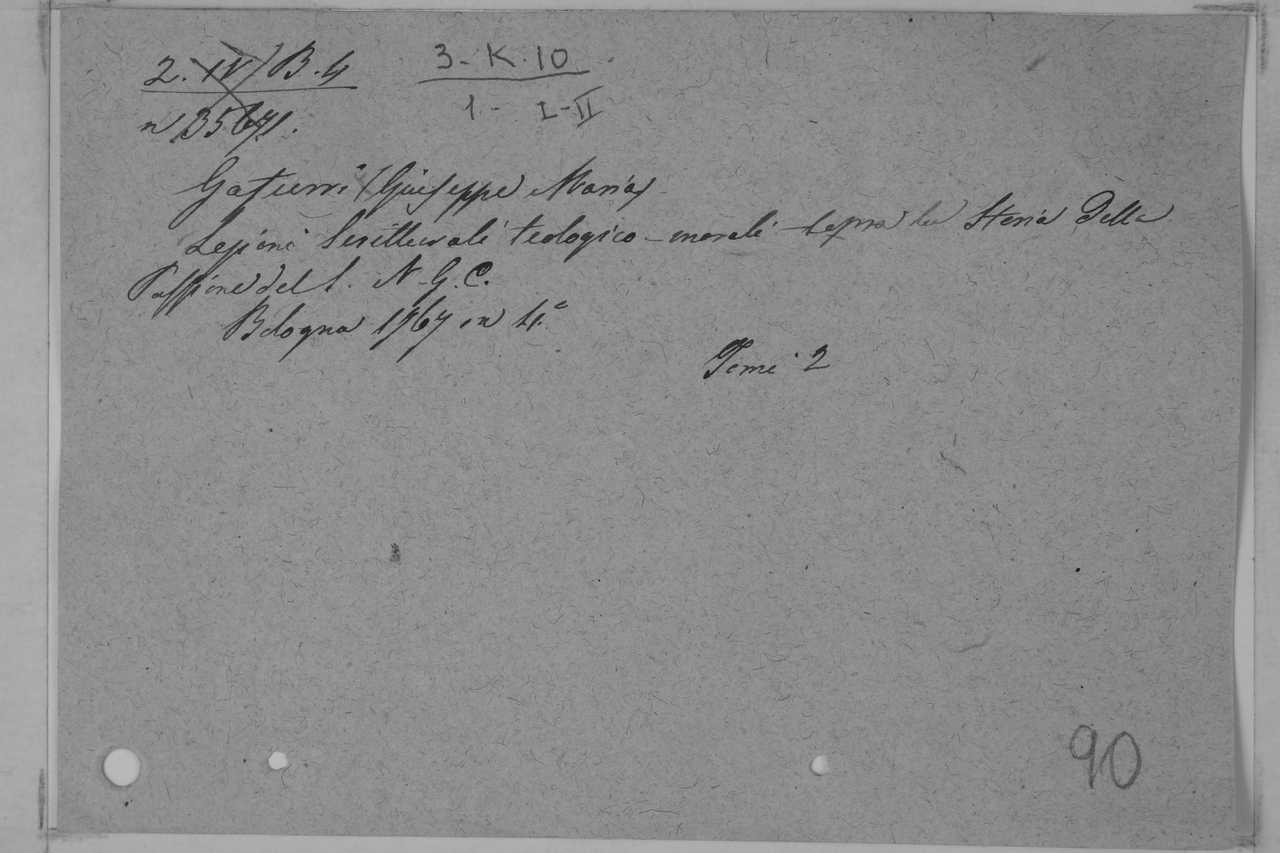 2. IV / B. 4
3-K.10
n 35671.
1- I-II
Gaturri (Giuseppe Maria)
Lezioni Scritturali teologico-morali sopra la Storia della
Passione del S. N. G. C.
Bologna 1767 in 4.°
Tomi 2
90